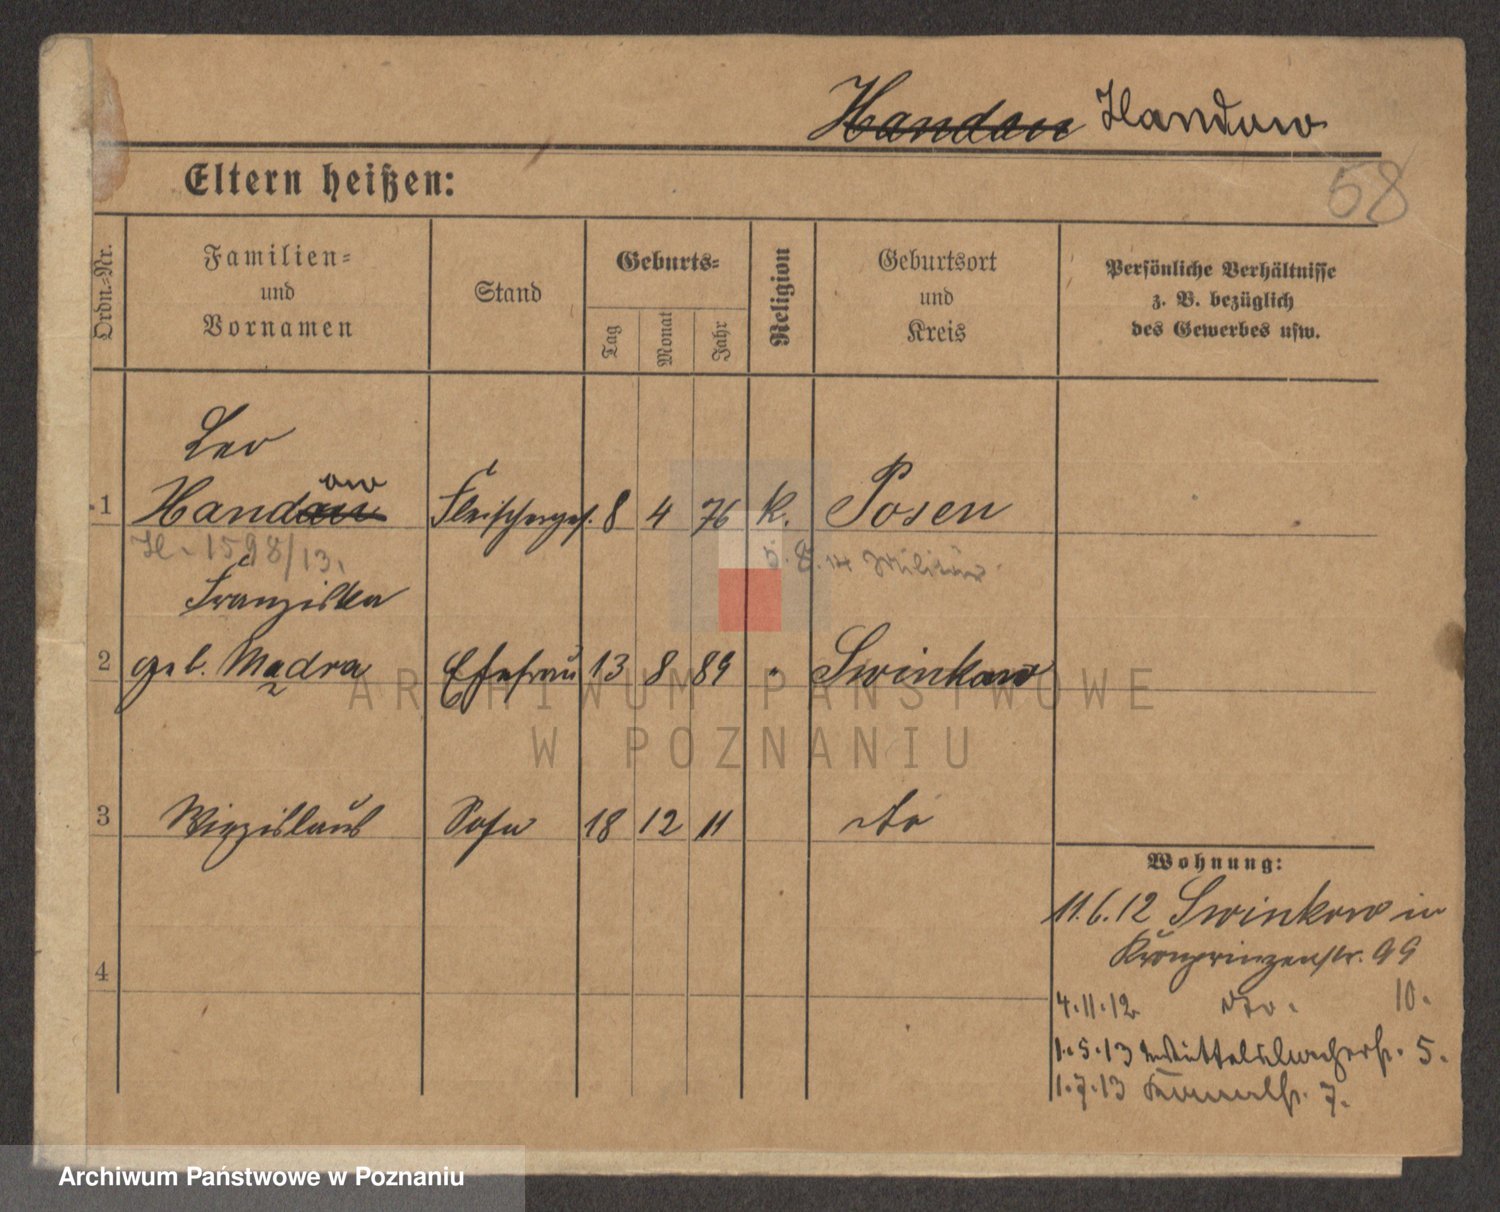 Handau Handow
58
Eltern heißen:
Ordn.-Nr.
Familien-
und
Vornamen
Stand
Geburts-
Tag
Monat
Jahr
Religion
Geburtsort
und
Kreis
Persönliche Verhältnisse
z. B. bezüglich
des Gewerbes usw.
Leo
ow
1 Handau Fleischerges. 8 4 76 k. Posen
H. 1598/13.
Militär
Franziska
2 geb. Madra Ehefrau 13 8 89 " Swinkow
ARCHIWUM PAŃSTWOWE
W POZNANIU
3 Wirzislaus Sohn 18 12 11 do
Wohnung:
11.6.12 Swinkow in
Kronprinzenstr. 99
4
4.11.12 dto. 10.
1.5.13 5.
1.7.13 7.
Archiwum Państwowe w Poznaniu